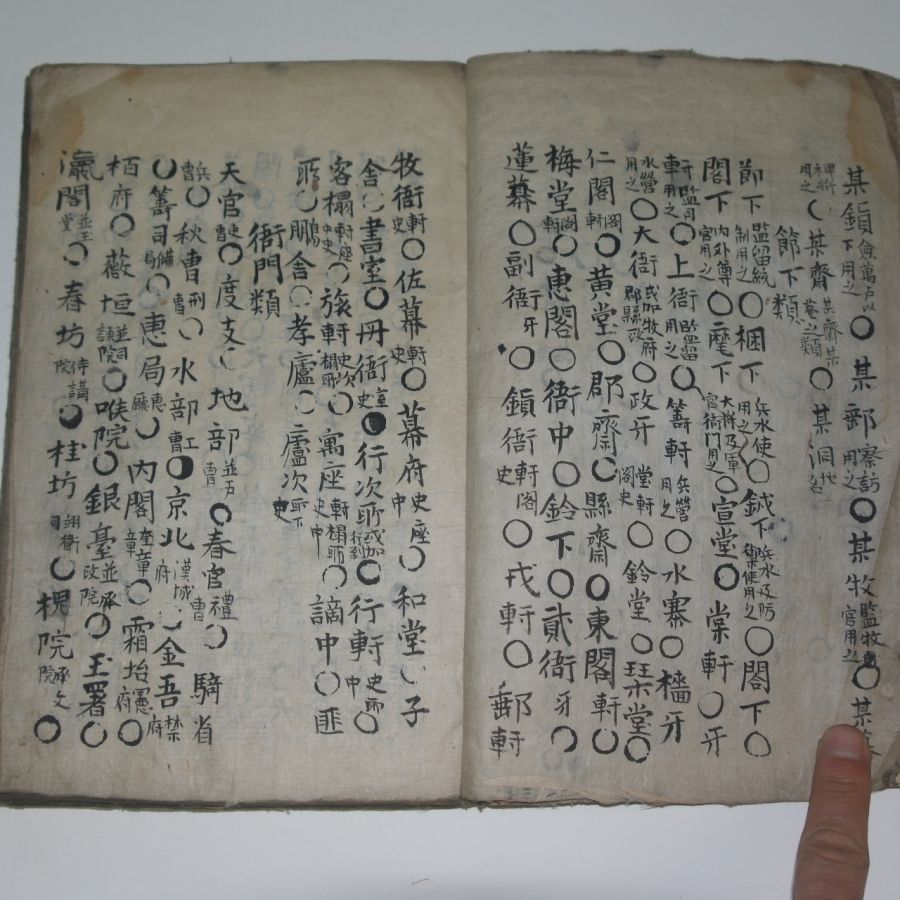 某鎭僉萬戶以下用之○某郵察訪用之○某牧監牧官用之○某
○某齋某齋某菴之類○某洞
節下類
節下監留統制用之○梱下兵水使用之○鉞下兵水及防禦使用之○閤下○
閤下內外尊官用之○麾下大將及軍官衙門用之○宣堂○棠軒○牙
軒監司用之○上衙監留用之○籌軒兵營用之○水寨○檣牙
水營用之○大衙或加牧府郡縣○政牙堂軒閤史○鈴堂○琹堂○
仁閣閤軒○黃堂○郡齋○縣齋○東閣軒○
梅堂閤軒○惠閣○衙中○鈴下○貳衙牙○
蓮幕○副衙牙○鎭衙軒閤史○戎軒○郵軒
牧衙軒史○佐幕軒史○幕府史座中○和堂○子
舍○書室○丹衙室史○行次所或加行到○行軒史所中○
客榻軒座中史○旅軒史次榻所○寓座軒榻所中○謫中○匪
所○鵬舍○孝廬○廬次所下史
衙門類
天官吏曹○度支○地部並戶曹○春官禮曹○騎省
兵曹○秋曹刑曹○水部工曹○京北漢城府○金吾禁府
○籌司備局○惠局惠廳○內閣奎章章○霜坮憲府○
栢府○薇垣並司諫院○喉院○銀臺並承政院○玉署○
瀛閣並玉堂○春坊侍講院○桂坊翊衛司○槐院承文院○